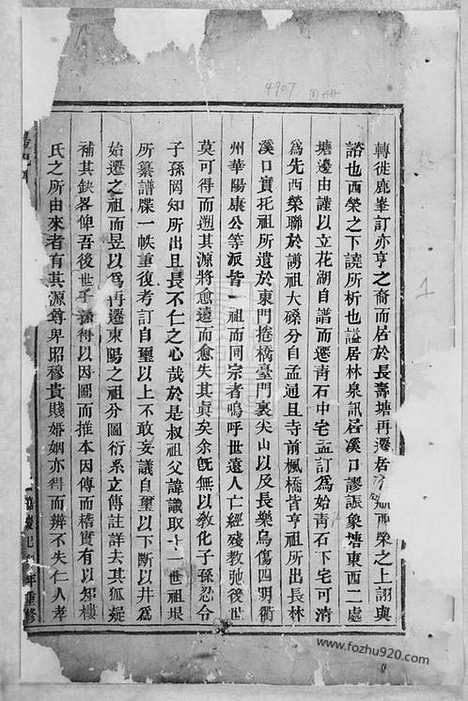 4907
轉徙鹿峯訂亦亨之裔而居於長壽塘再遷居西榮之上詡與
諮也西榮之下譊所析也謚居林泉訊居溪口謬詬象塘東西二處
塘邊由謹以立花湖自譜而遷青石中宅孟訂為始青石下宅可清
為先西榮聯於謭祖大磉分自孟通且寺前楓橋皆亨祖所出長林
溪口實托祖所遺於東門捲橋臺門裏尖山以及長樂烏傷四明衢
州華陽康公等派皆一祖而同宗者嗚呼世遠人亡經殘教弛後世
莫可得而遡其源將愈遠而愈失其真矣余旣無以教化子孫忍令
子孫罔知所出且長不仁之心哉於是叔祖父諱議取十一世祖垠
所纂譜牒一帙重復考訂自璽以上不敢妄議自璽以下斷以井為
始遷之祖而昱以為再遷東陽之祖分圖衍系立傳註詳去其狐疑
補其缺畧俾吾後世子孫得以因圖而推本因傳而稽實有以知樓
氏之所由來者有其源尊卑昭穆貴賤婚姻亦得而辨不失仁人孝
年重修
1
www.fozhu920.com